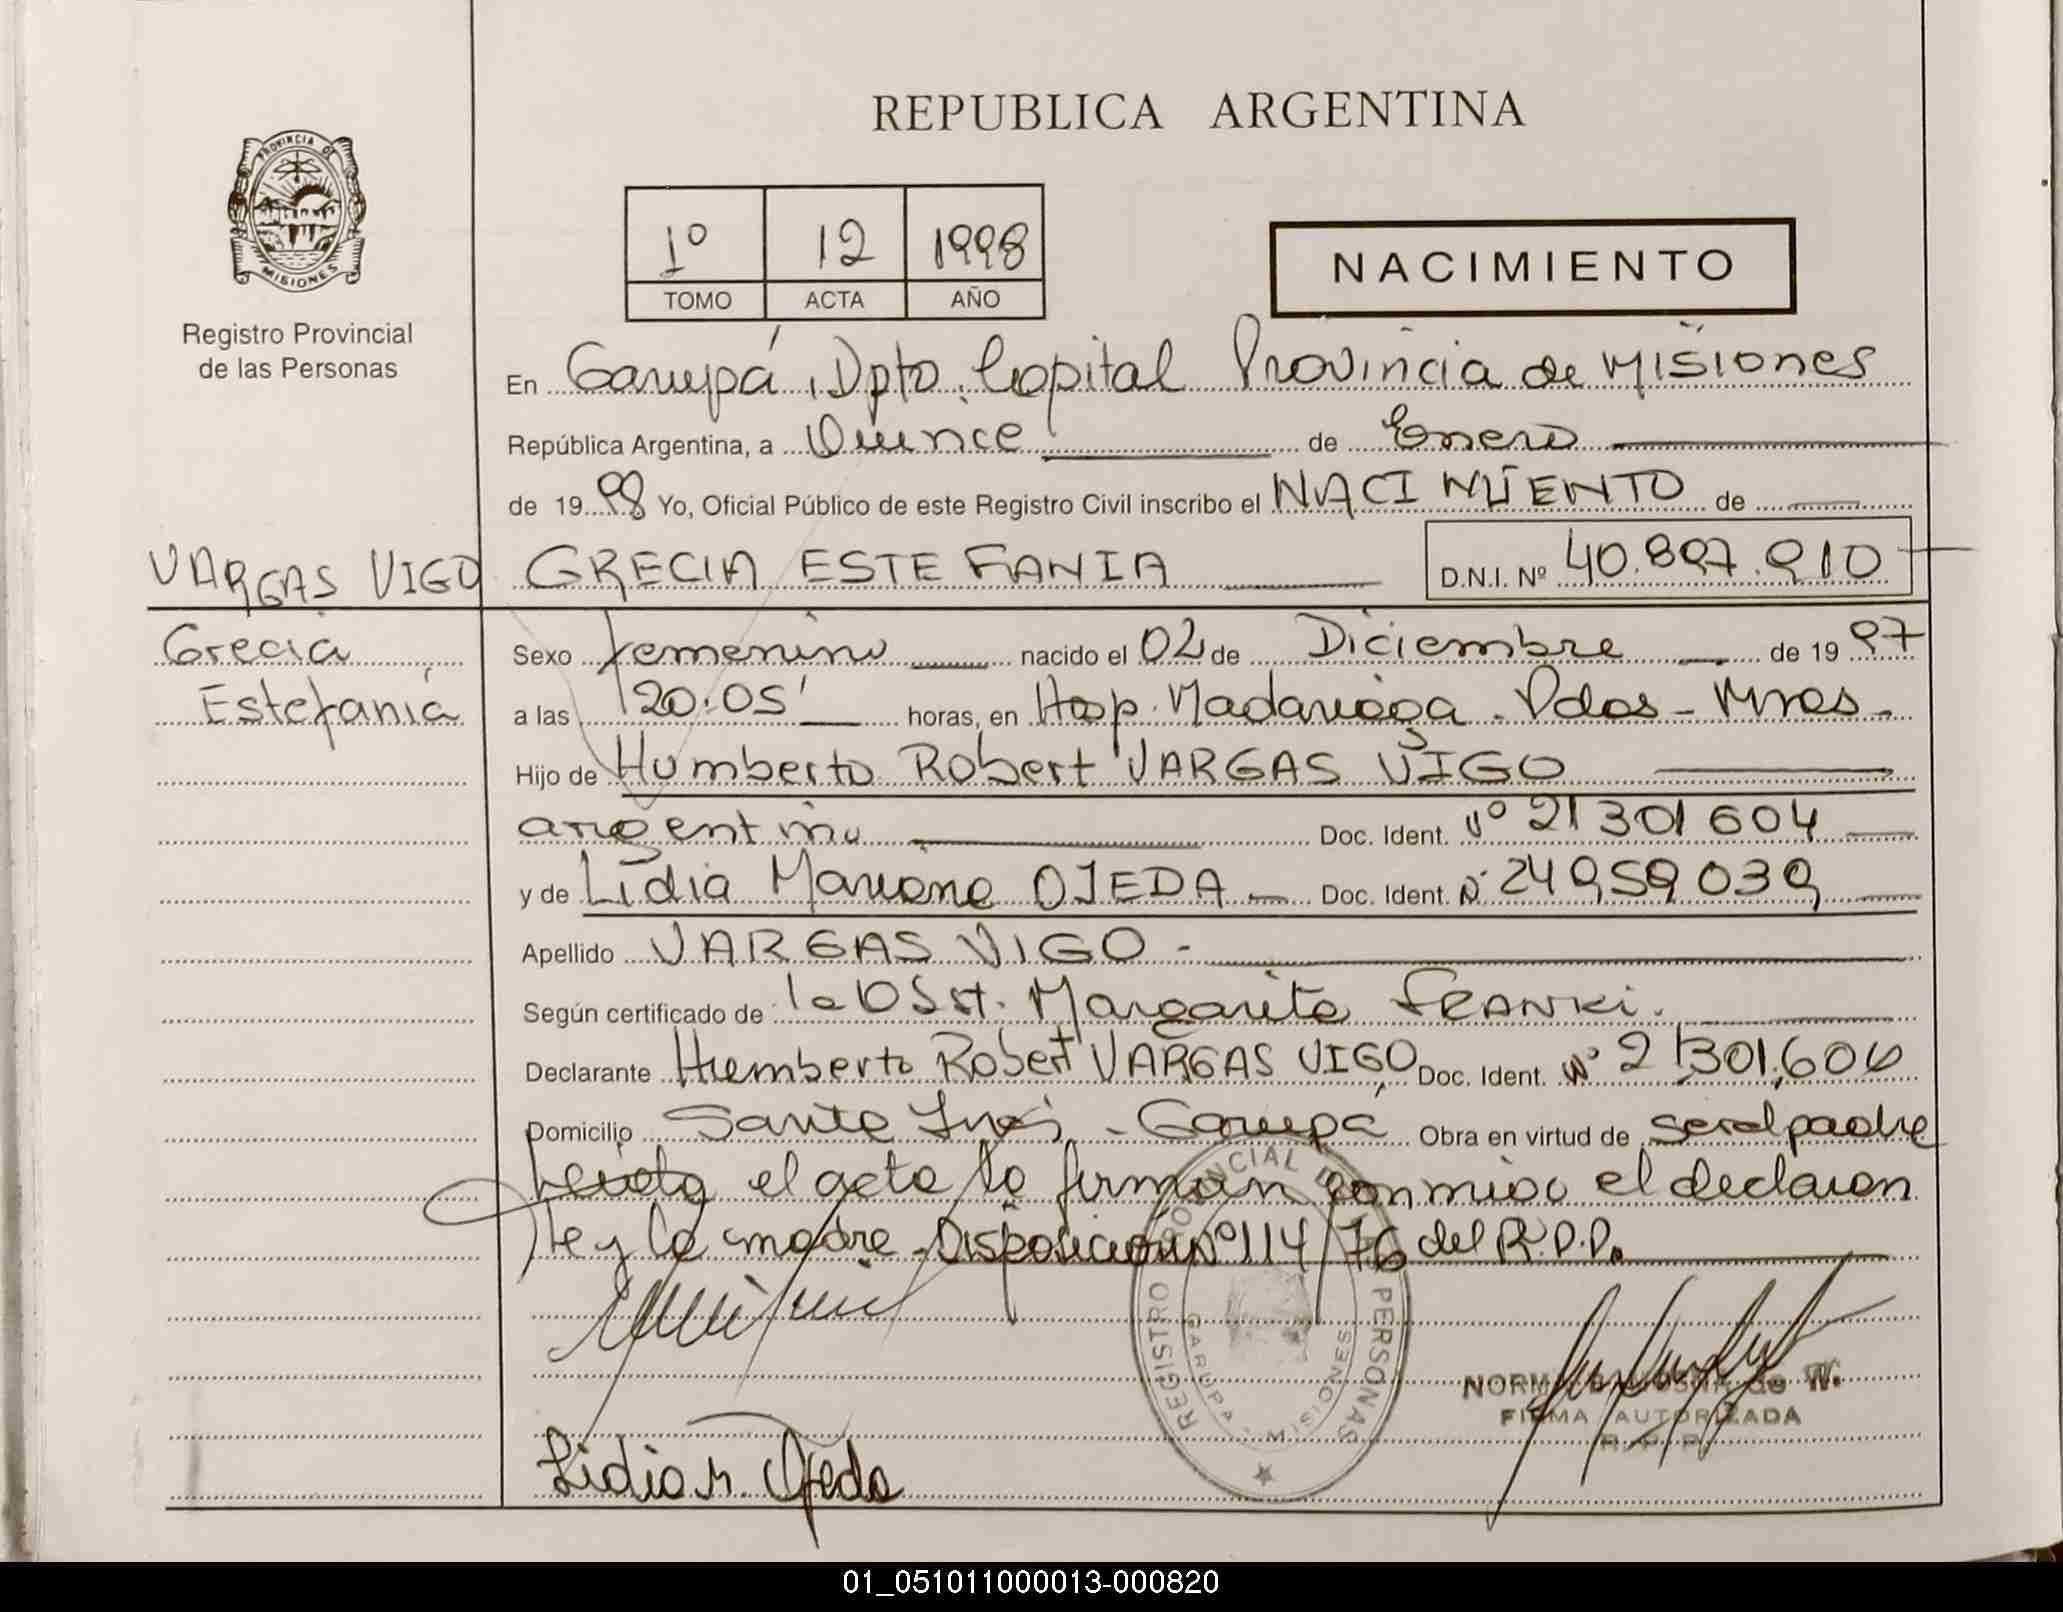 REPUBLICA ARGENTINA
PROVINCIA DE
MISIONES
Registro Provincial
de las Personas
1º 12 1998
TOMO ACTA AÑO
NACIMIENTO
En Garupá, Dpto. Capital Provincia de Misiones
República Argentina, a Quince de Enero
de 1998 Yo, Oficial Público de este Registro Civil inscribo el NACIMIENTO de
VARGAS VIGO GRECIA ESTEFANIA D.N.I. Nº 40.897.910
Grecia
Estefanía
Sexo femenino nacido el 02 de Diciembre de 1997
a las 20:05' horas, en Hosp. Madariaga - Pdas - Mnes -
Hijo de Humberto Robert VARGAS VIGO
argentino Doc. Ident. Nº 21 301 604
y de Lidia Mariana OJEDA - Doc. Ident. Nº 24 959 039
Apellido VARGAS VIGO -
Según certificado de la Obst. Margarita FRANKI.
Declarante Humberto Robert VARGAS VIGO Doc. Ident. Nº 21301,604
Domicilio Santa Inés - Garupá Obra en virtud de ser el padre
Leída el acta la firman conmigo el declaran
te y la madre - Disposición Nº 114/76 del R.P.P.
REGISTRO PROVINCIAL PERSONAS
GARUPA - MISIONES
de W.
FIRMA AUTORIZADA
R. P. P.
Lidia M. Ojeda
01_051011000013-000820